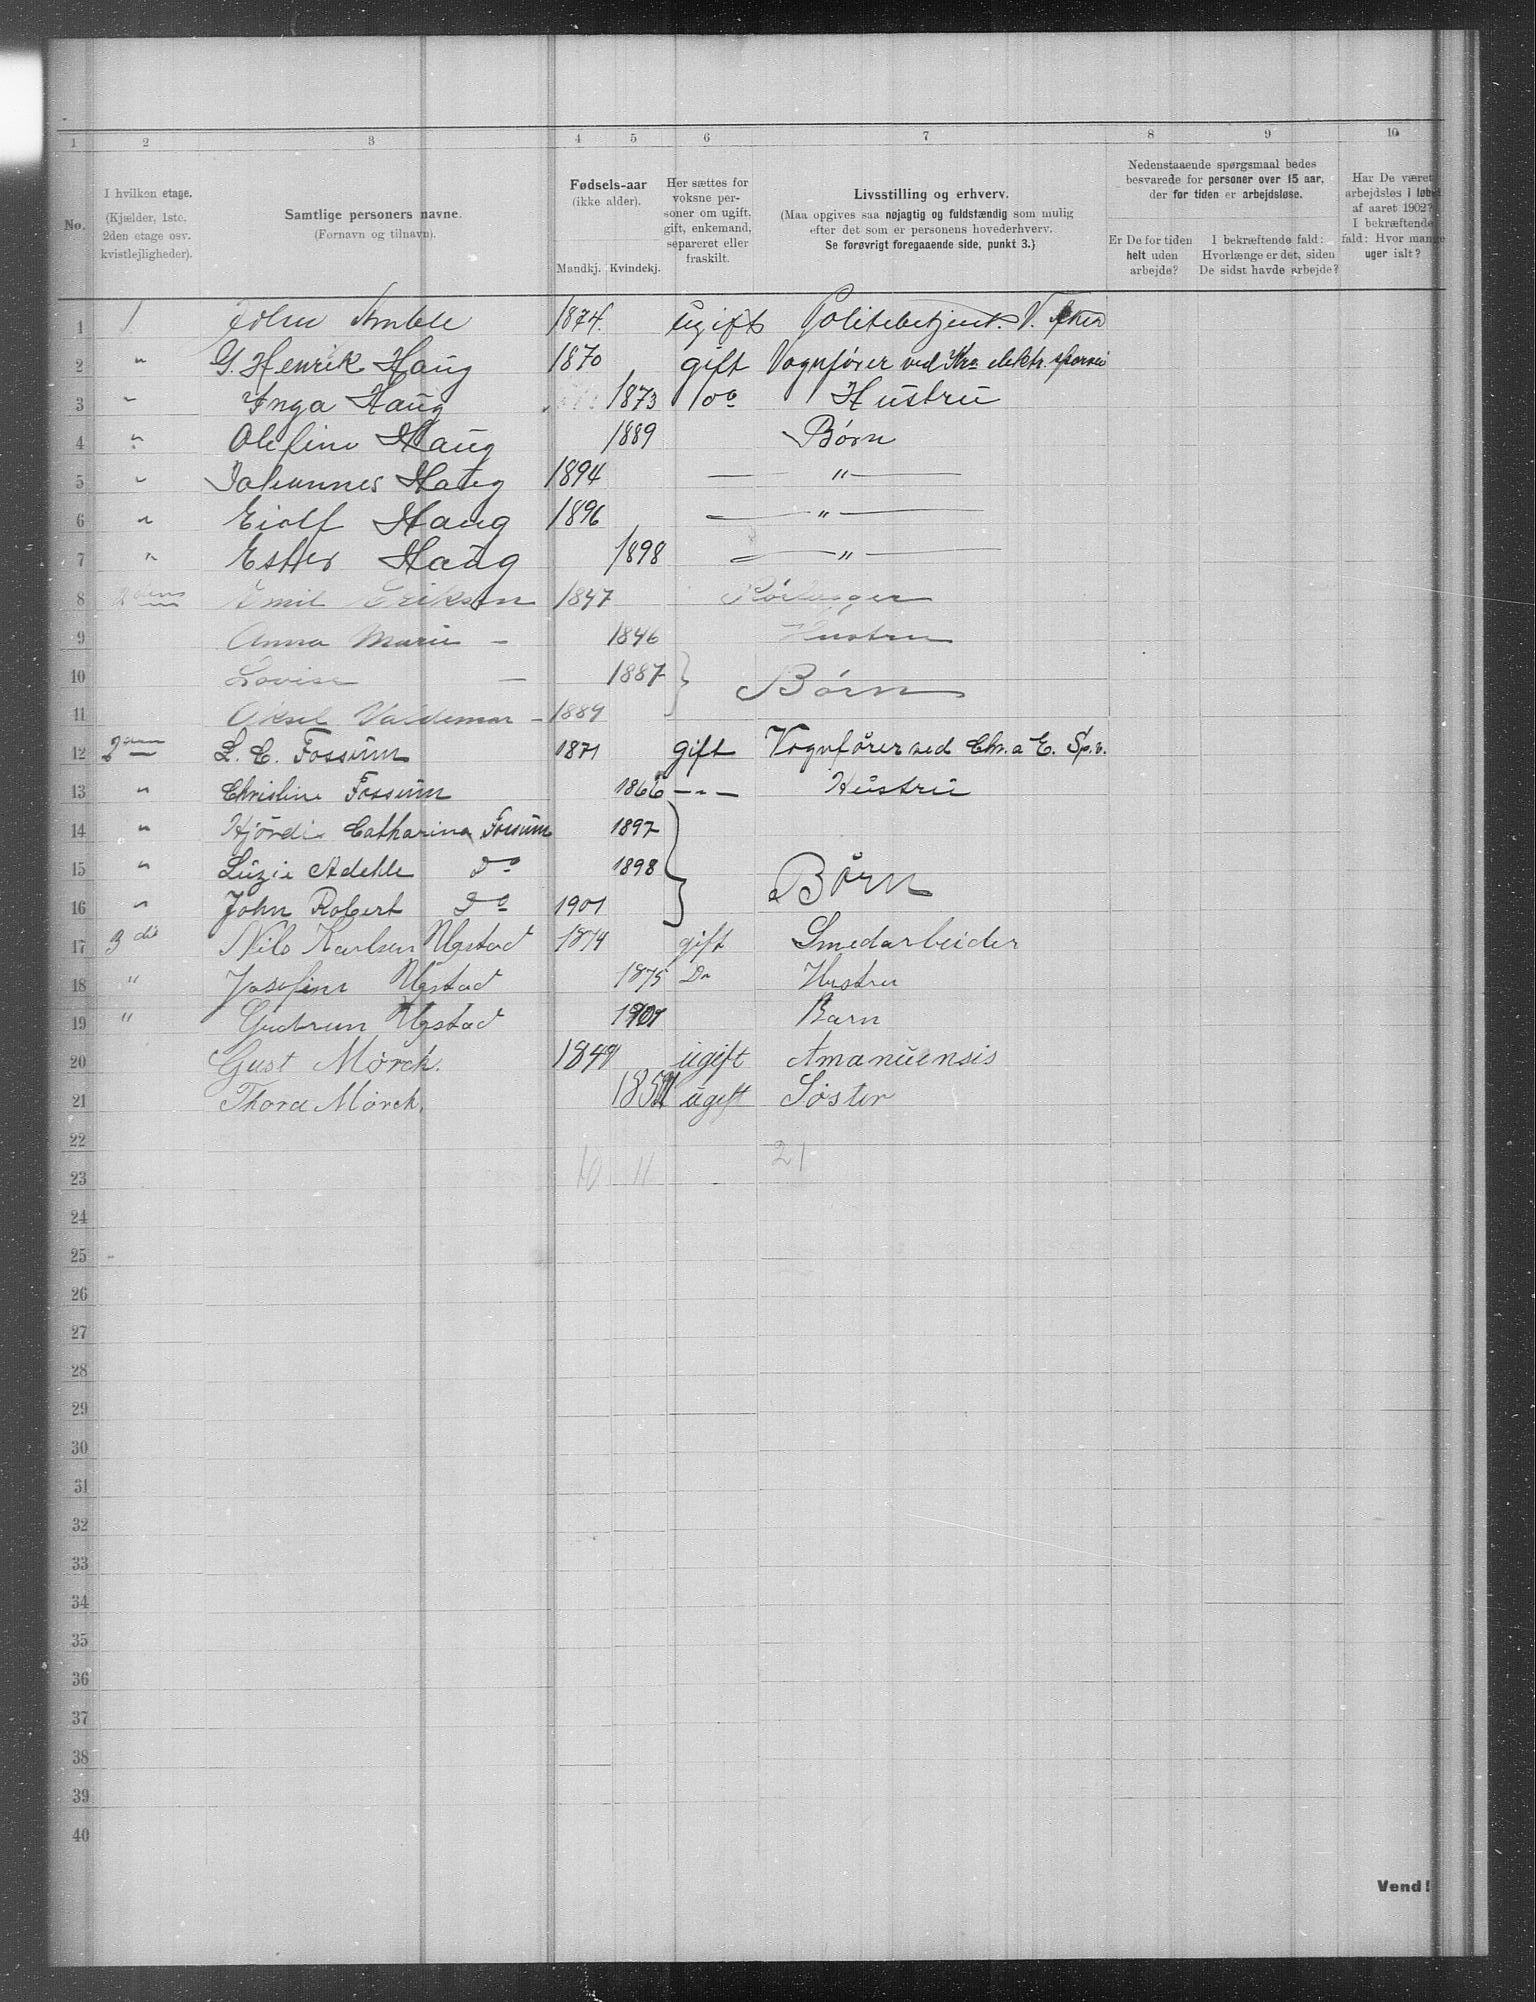 1 2 3 4 5 6 7 8 9 10
No.
I hvilken etage.
(Kjælder, 1ste.
2den etage osv.
kvistlejligheder).
Samtlige personers navne.
(Fornavn og tilnavn).
Fødsels-aar
(ikke alder).
Mandkj. Kvindekj.
Her sættes for
voksne per-
soner om ugift,
gift, enkemand,
separeret eller
fraskilt.
Livsstilling og erhverv.
(Maa opgives saa nøjagtig og fuldstændig som mulig
efter det som er personens hovederhverv.
Se forøvrigt foregaaende side, punkt 3.)
Nedenstaaende spørgsmaal bedes
besvarede for personer over 15 aar,
der for tiden er arbejdsløse.
Er De for tiden
helt uden
arbejde?
I bekræftende fald:
Hvorlænge er det, siden
De sidst havde arbejde?
Har De været
arbejdsløs i løbet
af aaret 1902?
I bekræftende
fald: Hvor mange
uger ialt?
1 1 John 1874. ugift Politibetjent. V. Aker
2 " G. Henrik Haug 1870 gift Vognfører ved Kra elektr. sporvei
3 " Inga Haug 1873 Do Hustru
4 " Olefine Haug 1889 Børn
5 " Johannes Haug 1894 — " —
6 " Eiolf Haug 1896 — " —
7 " Ester Haug 1898 — " —
8 2dens Emil Eriksen 1847 Rørlægger
9 Anna Marie - 1846 Hustru
10 Lovise - 1887 } Børn
11 Aksel Valdemar - 1889
12 2den L. E. Fossum 1871 gift Vognfører ved Chr.a E. Sp.v.
13 " Christine Fossum 1866 - " - Hustru
14 " Hjördis Catharina Fossum 1897
15 " Luzie Adehle Do 1898 } Børn
16 " John Robert Do 1901
17 3die Nils Karlsen Ulgstad 1874 gift Smedarbeider
18 " Josefine Ulgstad 1875 Do Hustru
19 " Gudrun Ulgstad 1901 Barn
20 Gust Mørch. 1849 ugift Amanuensis
21 Thora Mørch. ugift Søster
22 10 11 21
23
24
25
26
27
28
29
30
31
32
33
34
35
36
37
38
39
40
Vend!